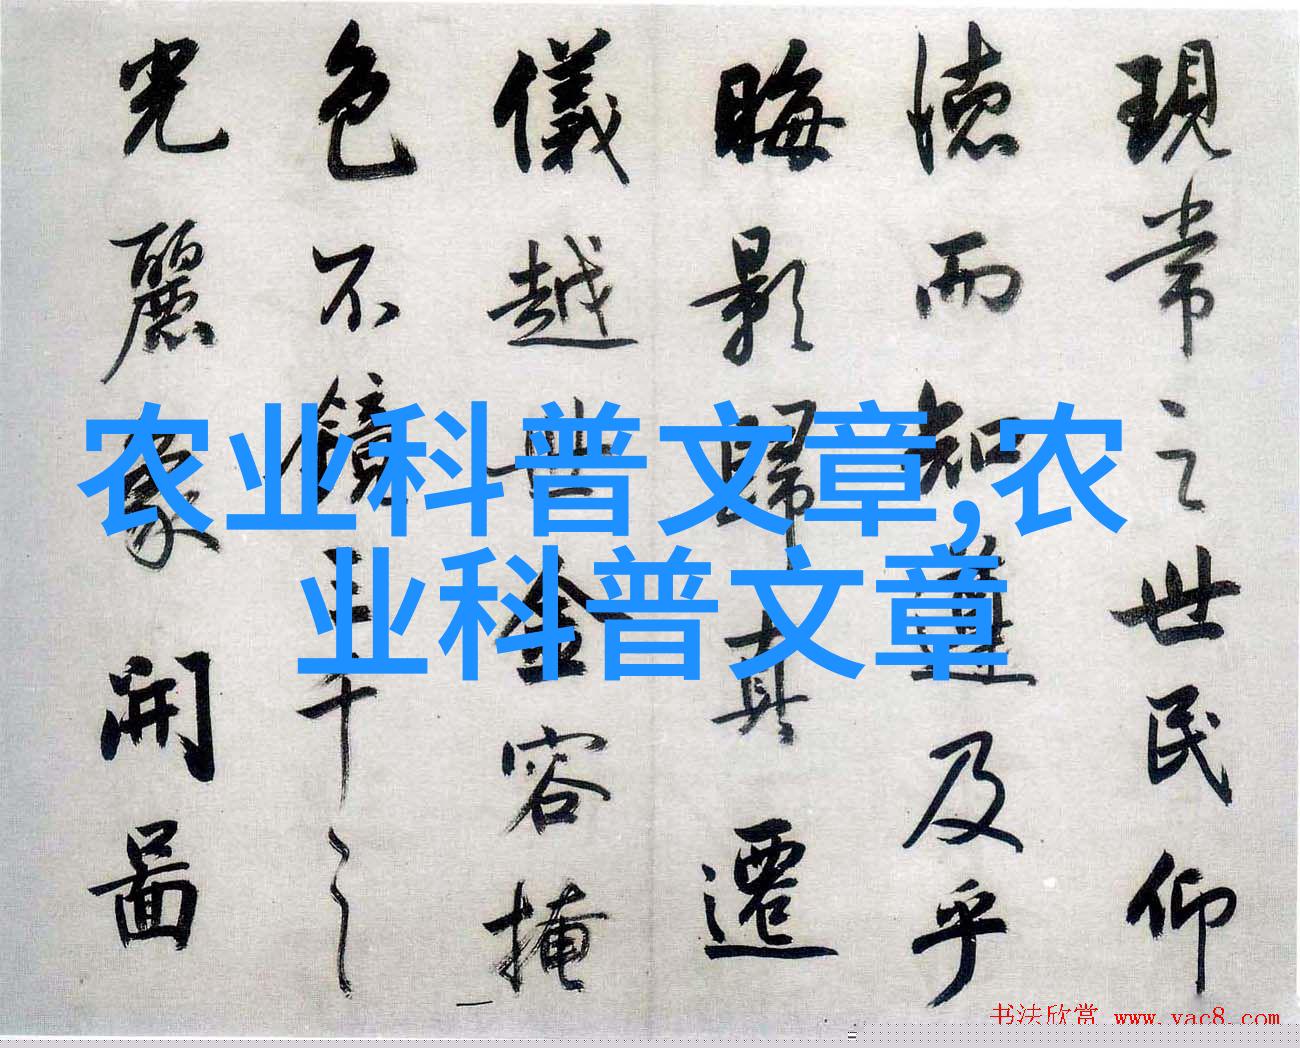 現常之世民仰
德而知遵及乎
晦影歸真遷
儀越世金容掩
色不鏡三千之
光麗象開圖
农业科普文章,农
业科普文章
书法欣赏 www.yac8.com